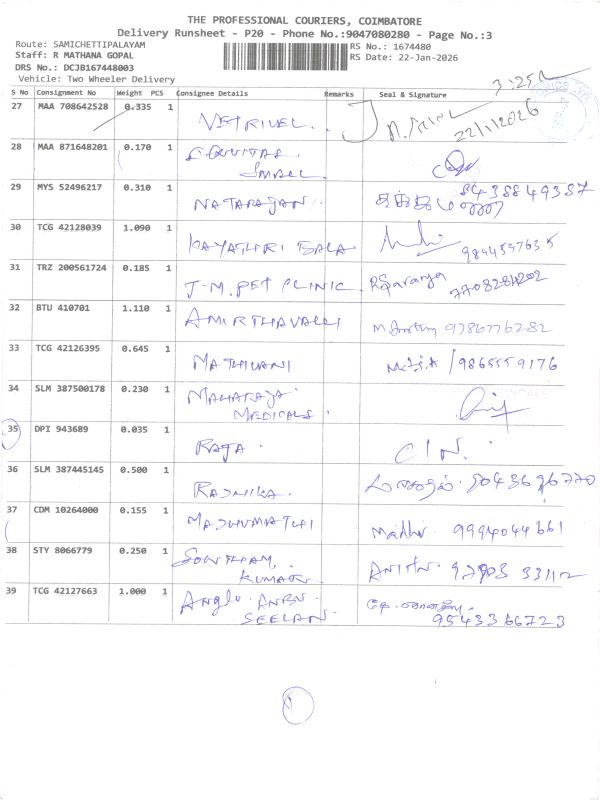 THE PROFESSIONAL COURIERS, COIMBATORE
Delivery Runsheet - P20 - Phone No.:9047080280 - Page No.:3
Route: SAMICHETTIPALAYAM
Staff: R MATHANA GOPAL
DRS No.: DCJB167448003
Vehicle: Two Wheeler Delivery
RS No.: 1674480
RS Date: 22-Jan-2026
S No Consignment No Weight PCS Consignee Details Remarks Seal & Signature
27 MAA 708642528 0.335 1 VETRIVEL. 22/1/2026
28 MAA 871648201 0.170 1 EQUITAS SMALL
29 MYS 52496217 0.310 1 NATARAJAN 8438849387
30 TCG 42128039 1.090 1 KAYATHRI BALA
31 TRZ 200561724 0.185 1 J-M. PET CLINIC. RSaranya 7708284202
32 BTU 410701 1.110 1 AMIRTHAVALLI 9786776282
33 TCG 42126395 0.645 1 MATHIVANI 9865559176
34 SLM 387500178 0.230 1 MAHARAJA MEDICALS
35 DPI 943689 0.035 1 RAJA
36 SLM 387445145 0.500 1 RAJNIKA.
37 CDM 10264000 0.155 1 MADHUMATHI Madhu. 9994044661
38 STY 8066779 0.250 1 GOWTHAM KUMAR
39 TCG 42127663 1.000 1 ANGLO. SEELAN 9543366723